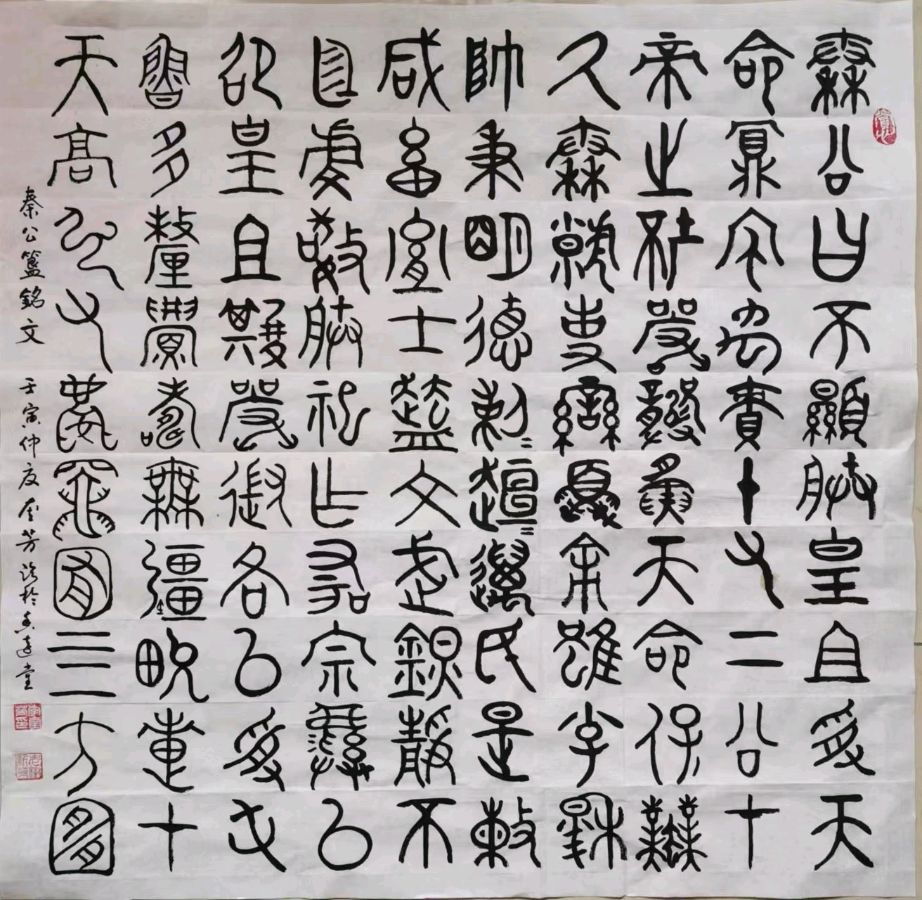 秦公曰不顯朕皇且受天
命鼏宅禹賷十又二公才
帝之坏嚴龏夤天命保業
氒秦虩事蠻夏余雖小子穆
帥秉明德剌=趄=邁民是敕
咸畜胤士盍文武鎮靜不
廷虔敬朕祀乍宗彝以
卲皇且其嚴各以受屯
魯多釐眉壽無疆畯疐才
天高弘又慶竈囿三方宜
秦公簋銘文 壬寅仲夏 芳 於 堂